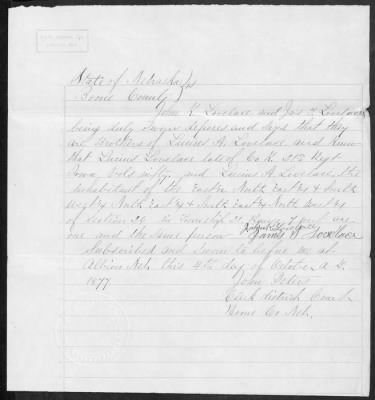 State of Nebraska } ss
Boone County }
John K. Lovelace and Jas F. Lovelace
being duly sworn deposes and says that they
are brothers of Lucius A. Lovelace and know
that Lucius Lovelace late of Co K Regt
Iowa Vols Infty and Lucius A. Lovelace the
inhabitant of the East ½ North East ¼ & South
West ¼ North East ¼ & South East ¼ North West ¼
of Section 26 in Township 21 Range 7 West are
one and the same person
John K Lovelace
James F Lovelace
Subscribed and sworn to before me at
Albion Neb this 4th day of October A.D.
1877
John Peters
Clerk district Court
Boone Co. Neb.